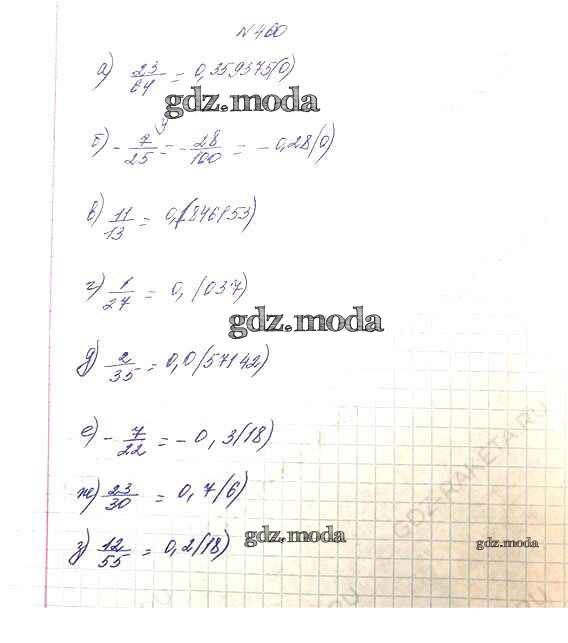 №460
а) 23/64 = 0,359375(0)
gdz.moda
б) - 7/25 = - 28/100 = - 0,28(0)
в) 11/13 = 0,(846153)
г) 1/27 = 0,(037)
gdz.moda
д) 2/35 = 0,0(57142)
е) - 7/22 = - 0,3(18)
ж) 23/30 = 0,7(6)
з) 12/55 = 0,2(18)
gdz.moda
gdz.moda
GDZ-RAKETA.RU